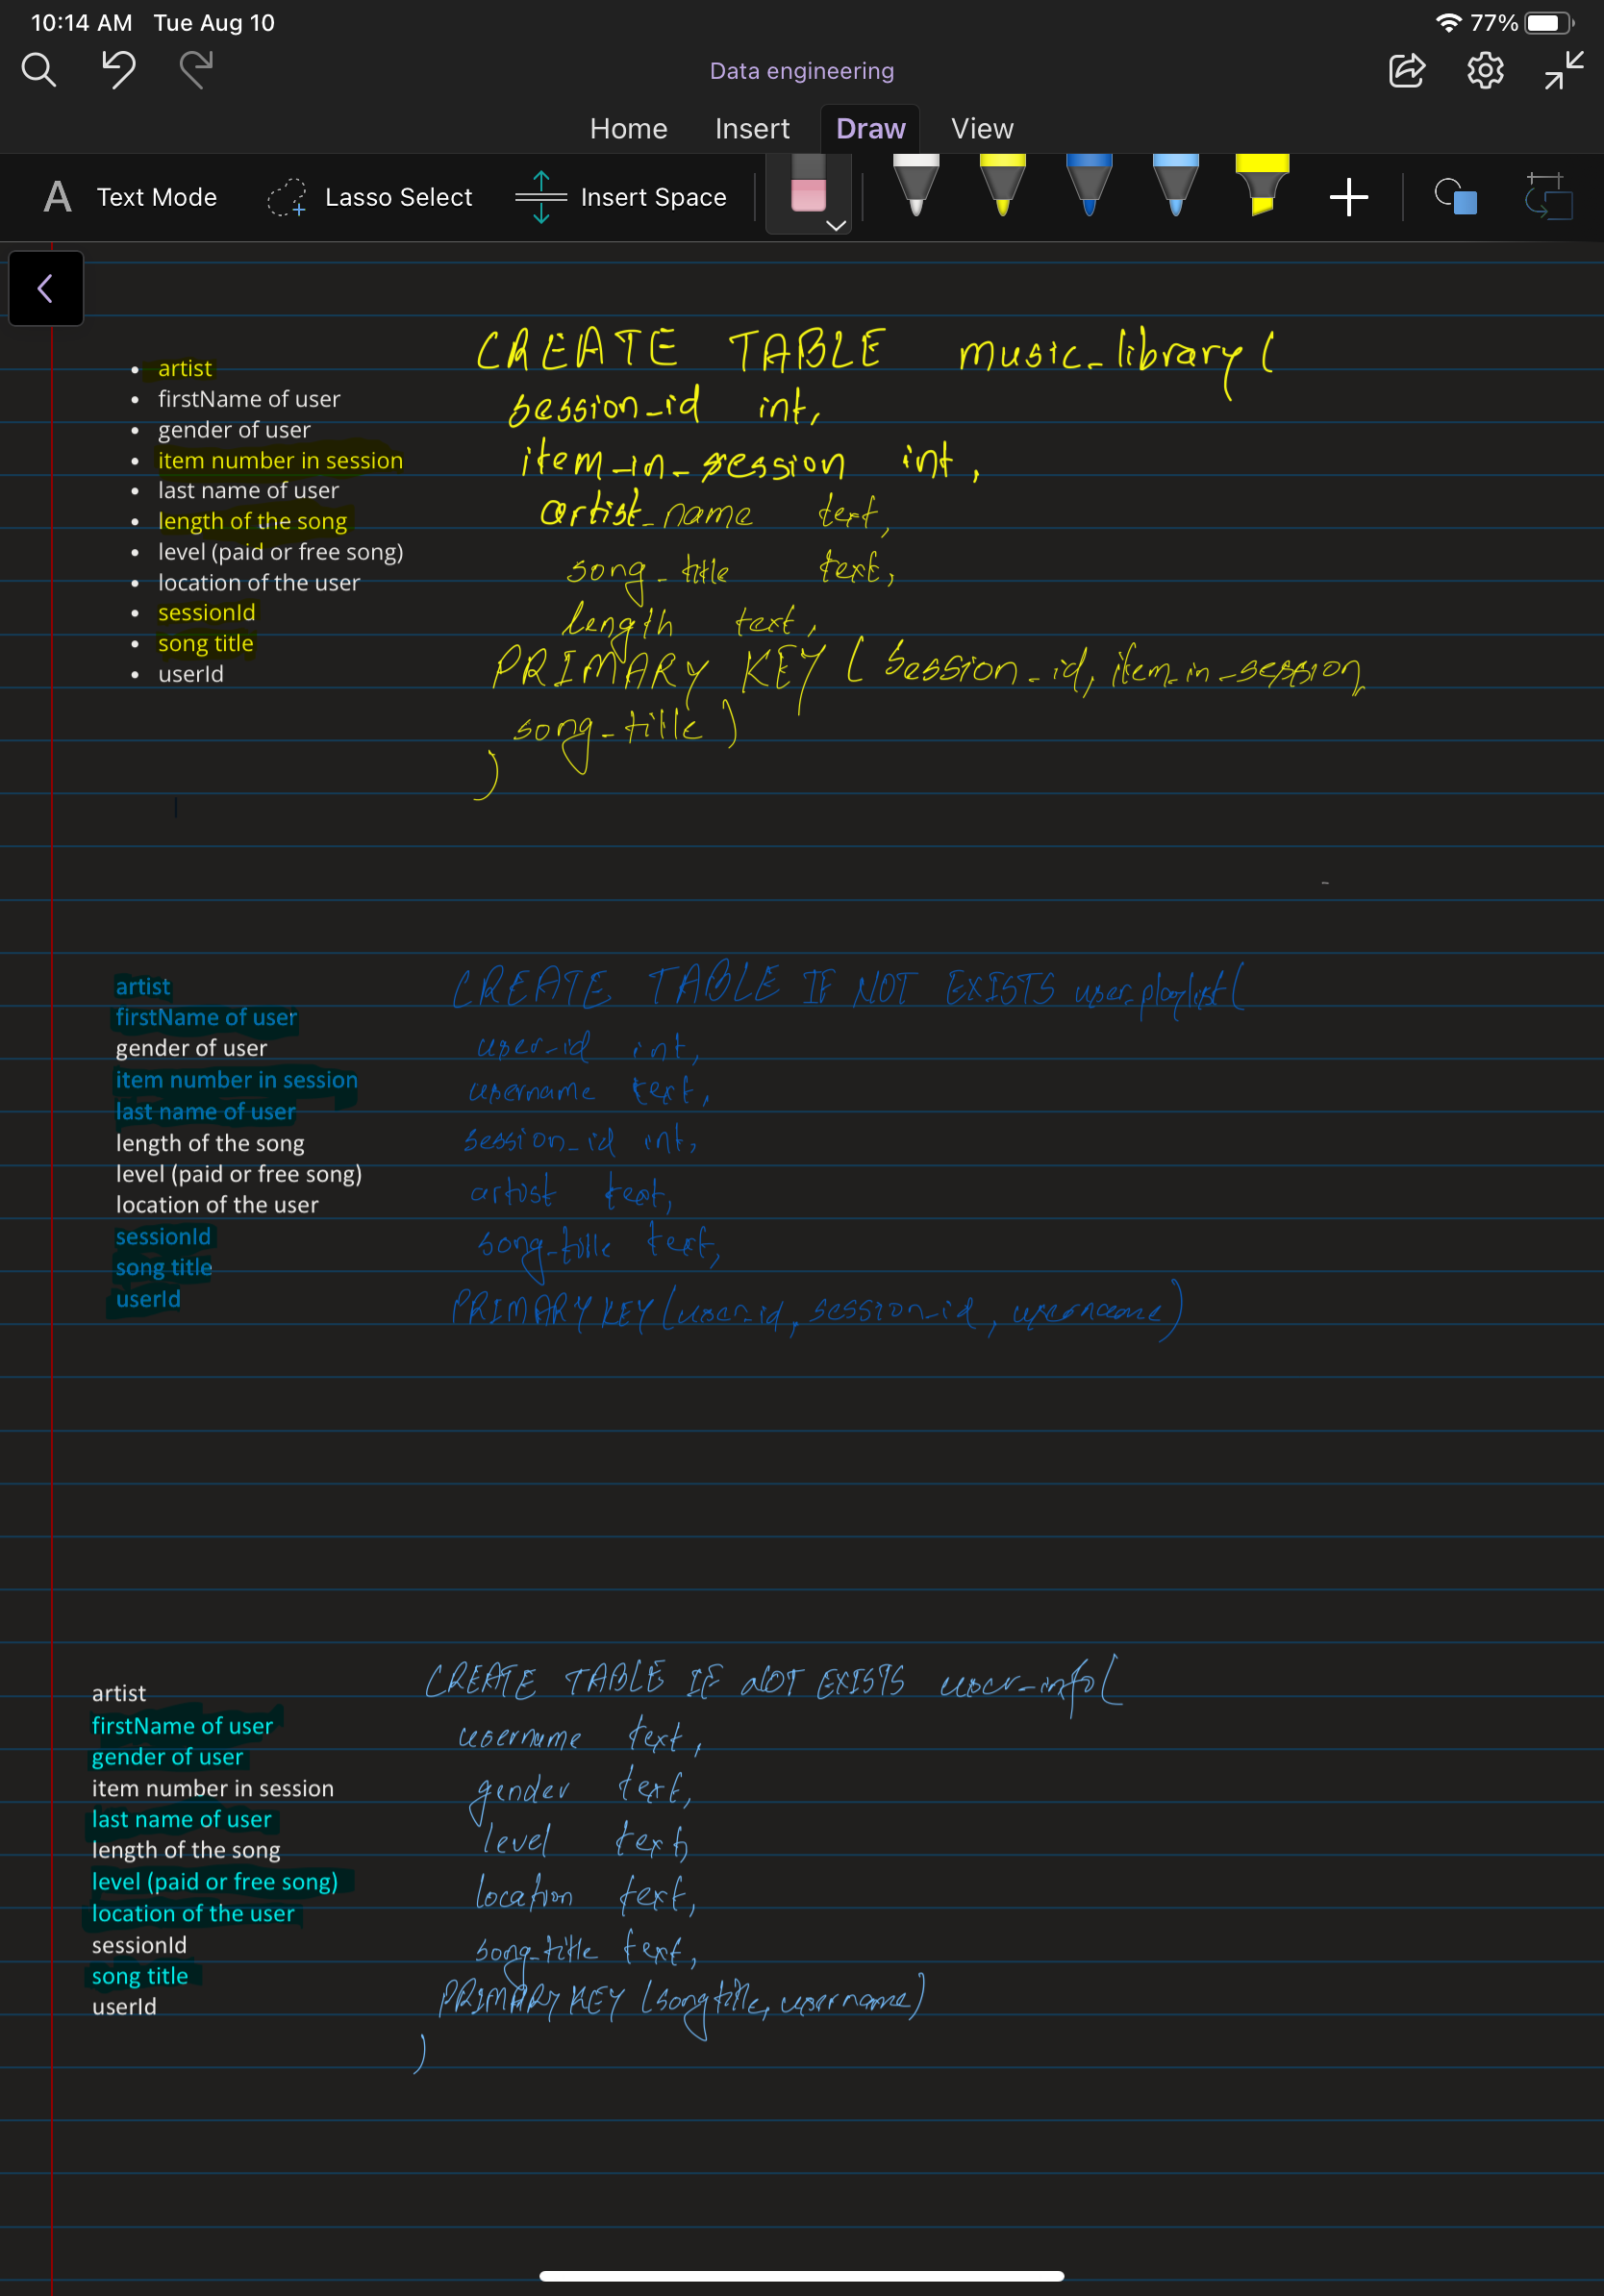 10:14 AM Tue Aug 10
77%
Data engineering
Home Insert Draw View
A Text Mode Lasso Select Insert Space
• artist
• firstName of user
• gender of user
• item number in session
• last name of user
• length of the song
• level (paid or free song)
• location of the user
• sessionId
• song title
• userId
CREATE TABLE music_library(
session_id int,
item_in_session int,
artist_name text,
song_title text,
length text,
PRIMARY KEY (session_id, item_in_session,
song_title)
)
artist
firstName of user
gender of user
item number in session
last name of user
length of the song
level (paid or free song)
location of the user
sessionId
song title
userId
CREATE TABLE IF NOT EXISTS user_playlist(
user_id int,
username text,
session_id int,
artist text,
song_title text,
PRIMARY KEY(user_id, session_id, username)
artist
firstName of user
gender of user
item number in session
last name of user
length of the song
level (paid or free song)
location of the user
sessionId
song title
userId
CREATE TABLE IF NOT EXISTS user_info(
username text,
gender text,
level text,
location text,
song_title text,
PRIMARY KEY (songtitle, username)
)